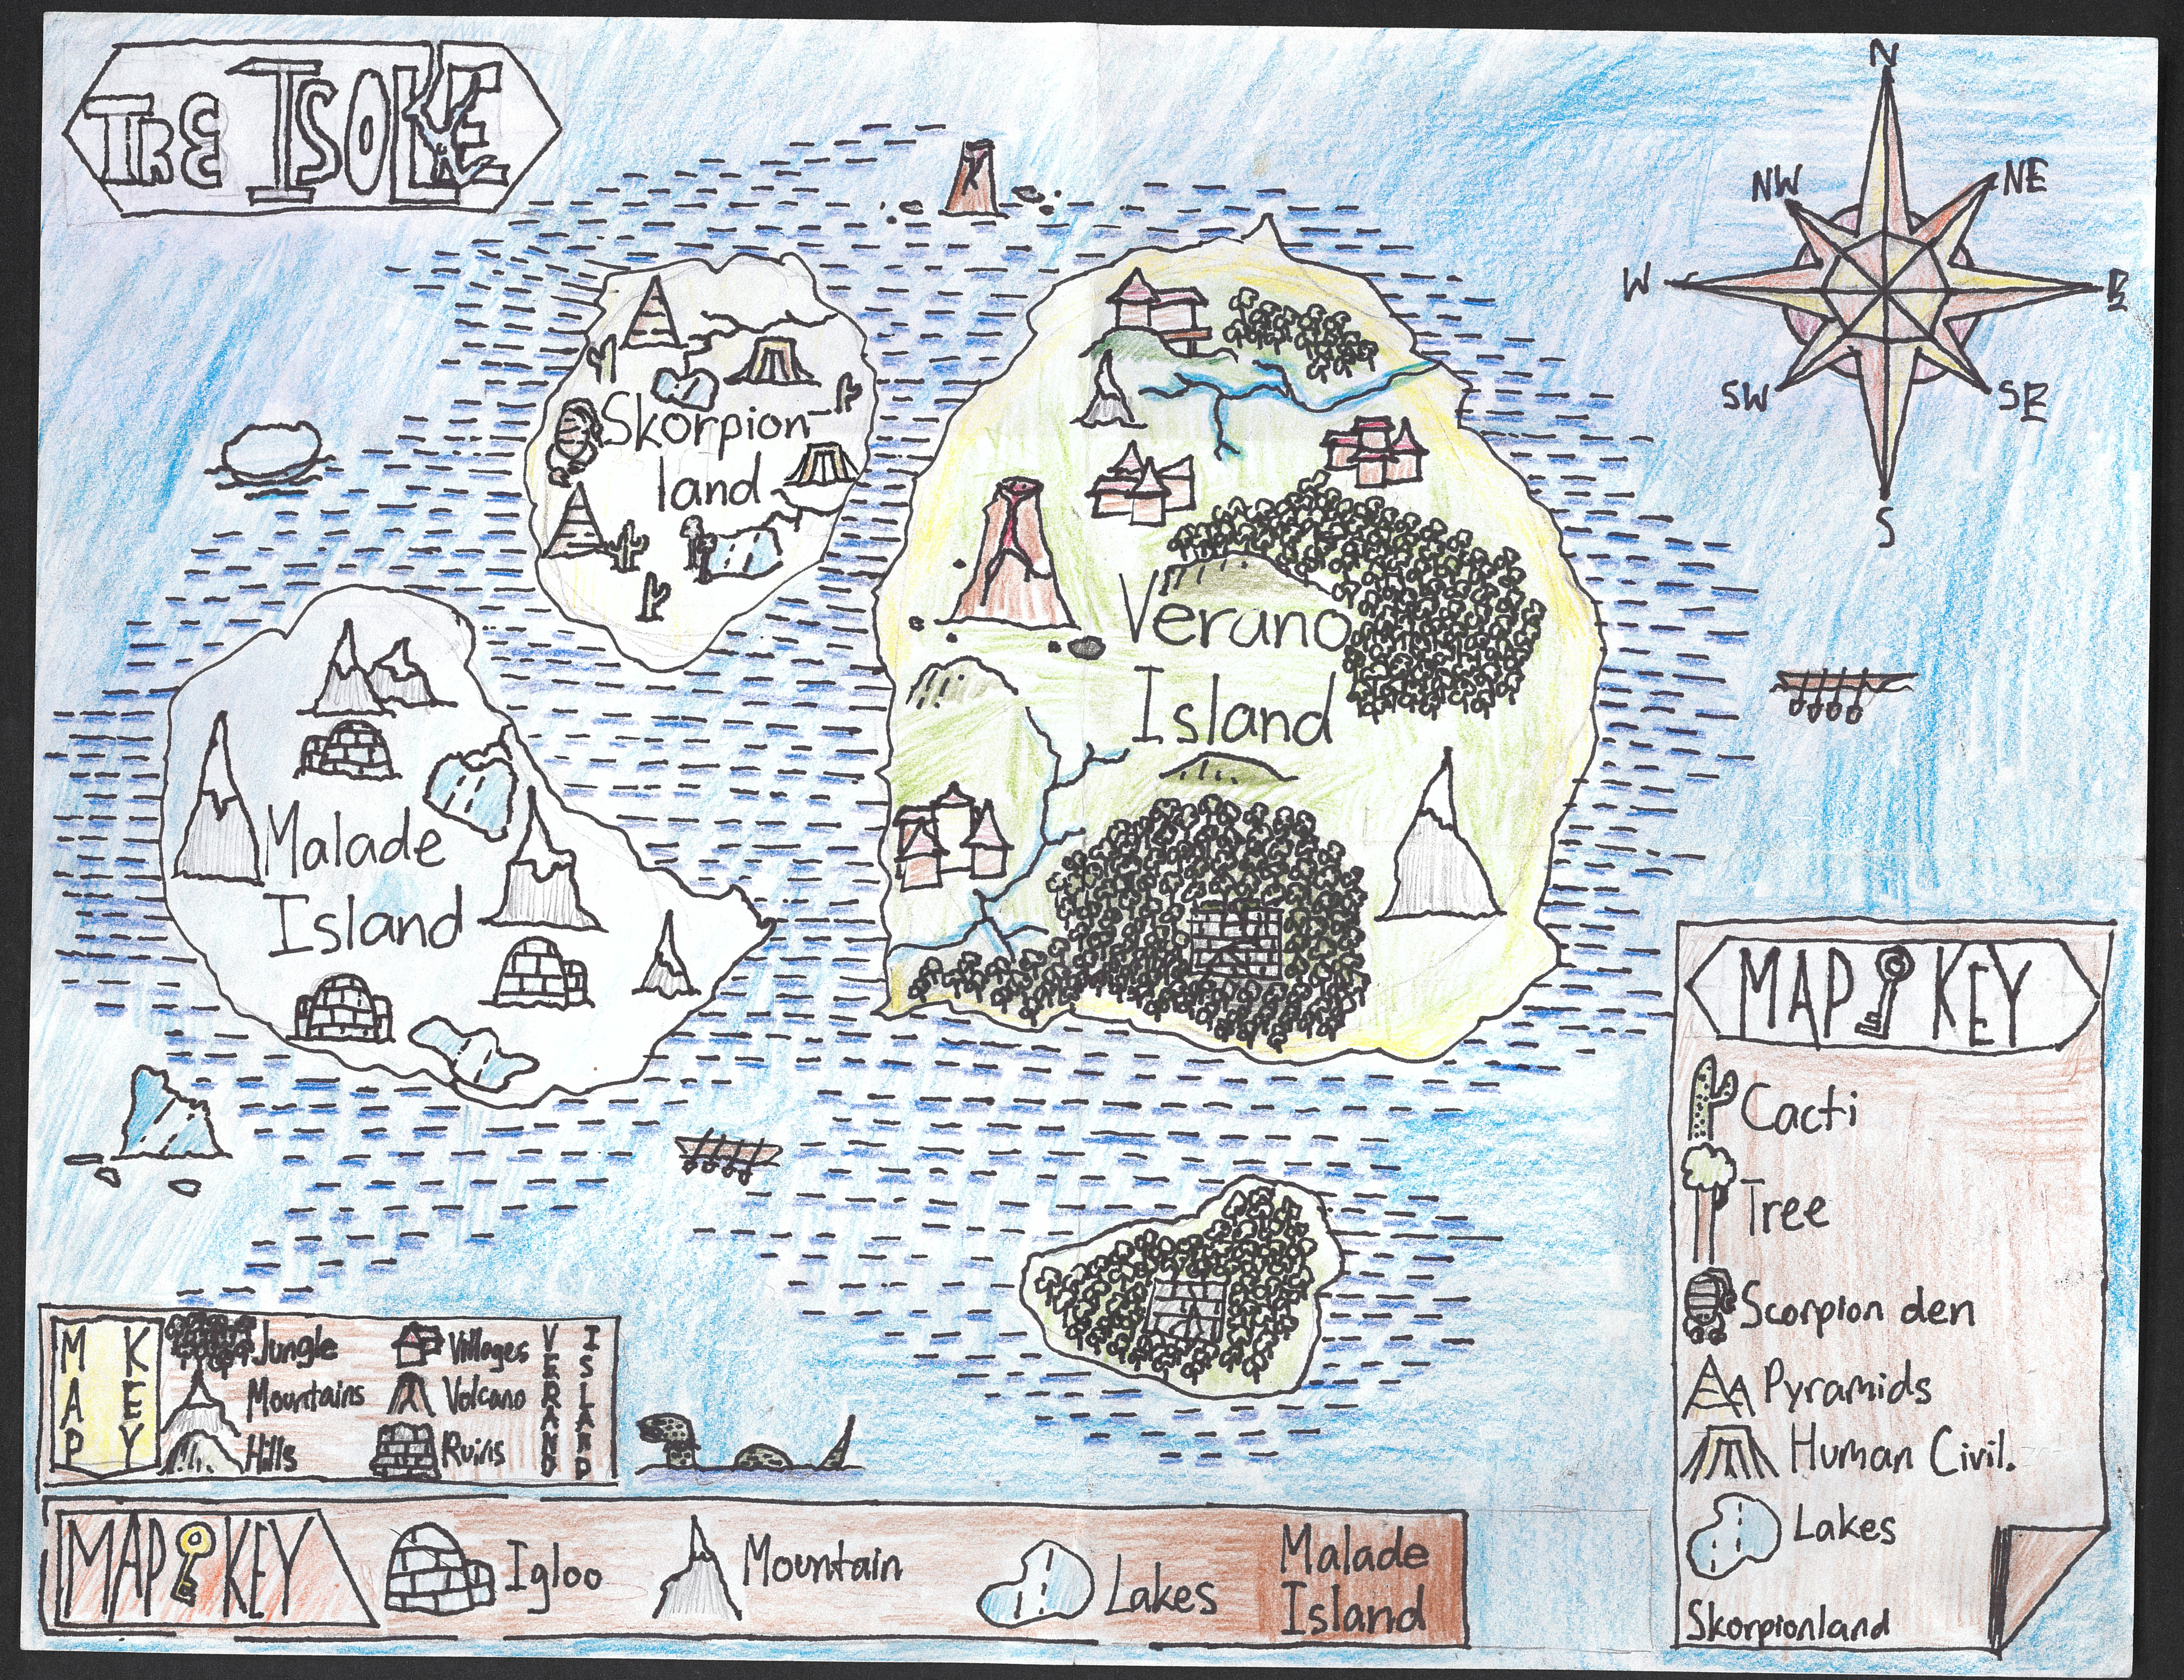 TRE ISOLE
N
NW
NE
W
E
SW
SE
S
Skorpion
land
Verano
Island
Malade
Island
MAP KEY
Cacti
Tree
Scorpion den
Pyramids
Human Civil.
Lakes
Skorpionland
MAP KEY
Jungle
Villages
Mountains
Volcano
Hills
Ruins
VERANO
ISLAND
MAP KEY
Igloo
Mountain
Lakes
Malade
Island